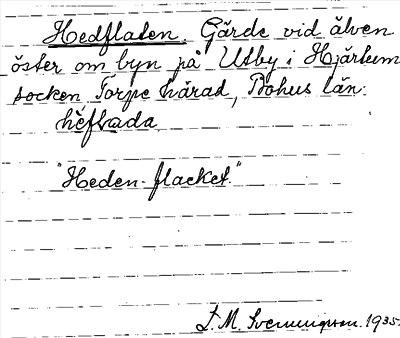 Hedflaten. Gärde vid älven
öster om byn på Utby i Hjärtum
socken Torpe härad, Bohus län.
"Heden-flacket."
L. M. Svenungsson. 1935.